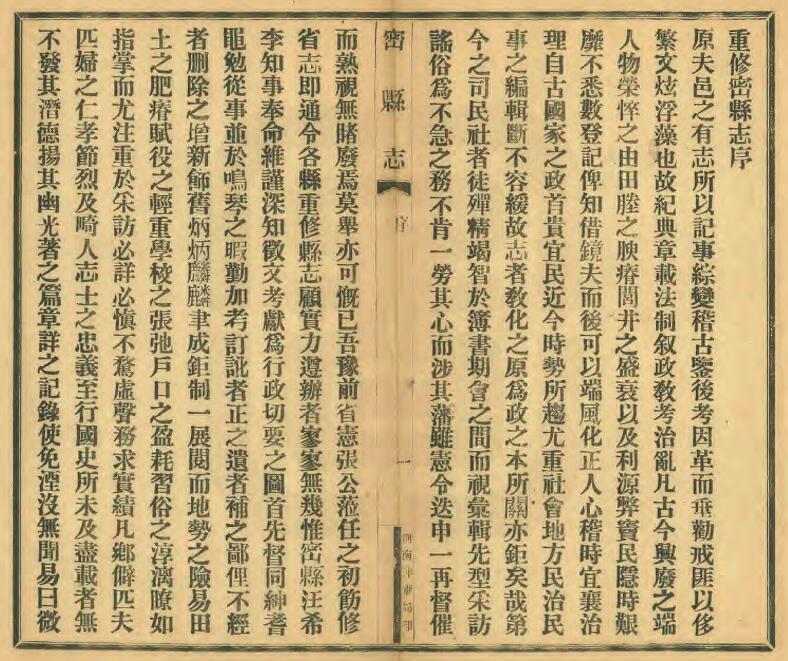 重修密縣志序
原夫邑之有志所以記事綜變稽古鑒後考因革而垂勸戒匪以侈
繁文炫浮藻也故紀典章載法制叙政敎考治亂凡古今興廢之端
人物榮悴之由田塍之腴瘠閭井之盛衰以及利源弊竇民隱時艱
靡不悉數登記俾知借鏡夫而後可以端風化正人心稽時宜襄治
理自古國家之政首貴宜民近今時勢所趨尤重社會地方民治民
事之編輯斷不容緩故志者敎化之原爲政之本所關亦鉅矣哉第
今之司民社者徒殫精竭智於簿書期會之間而視彙輯先型采訪
謠俗爲不急之務不肯一勞其心而涉其藩雖憲令迭申一再督催
密縣志
序
一
而熟視無睹廢焉莫舉亦可慨已吾豫前省憲張公蒞任之初飭修
省志即通令各縣重修縣志顧實力遵辦者寥寥無幾惟密縣汪希
李知事奉命維謹深知徵文考獻爲行政切要之圖首先督同紳耆
黽勉從事並於鳴琴之暇勤加考訂訛者正之遺者補之鄙俚不經
者刪除之增新飾舊炳炳麟麟聿成鉅制一展閱而地勢之險易田
土之肥瘠賦役之輕重學校之張弛戶口之盈耗習俗之淳漓瞭如
指掌而尤注重於采訪必詳必愼不騖虛聲務求實績凡鄉僻匹夫
匹婦之仁孝節烈及畸人志士之忠義至行國史所未及盡載者無
不發其潛德揚其幽光著之篇章詳之記錄使免湮沒無聞易曰微